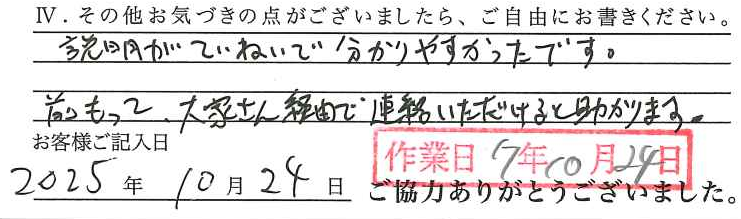 Ⅳ．その他お気づきの点がございましたら、ご自由にお書きください。
説明がていねいで分かりやすかったです。
前もって、大家さん経由で連絡いただけると助かります。
お客様ご記入日
作業日 7年10月24日
2025年10月24日
ご協力ありがとうございました。